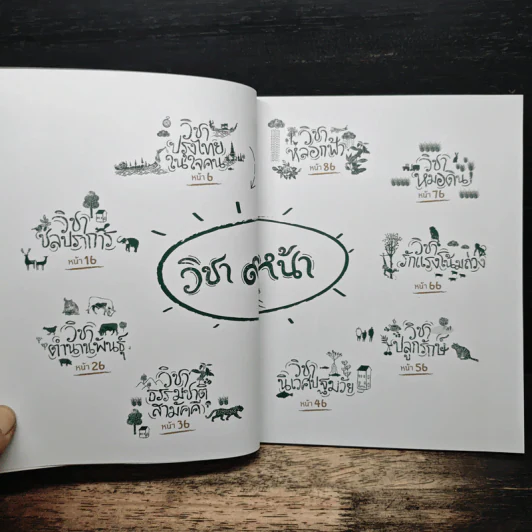 วิชา
ปรุงไทย
ในใจคน
หน้า 6
วิชา
ชลปราการ
หน้า 16
วิชา
ตำนานพันธุ์
หน้า 26
วิชา
ธรรมชาติ
สามัคคี
หน้า 36
วิชา ๙ หน้า
วิชา
หลอกฟ้า
หน้า 86
วิชา
หมอดิน
หน้า 76
วิชา
รักแรงโน้มถ่วง
หน้า 66
วิชา
ปลูกรักษ์
หน้า 56
วิชา
นิเวศปฐมวัย
หน้า 46